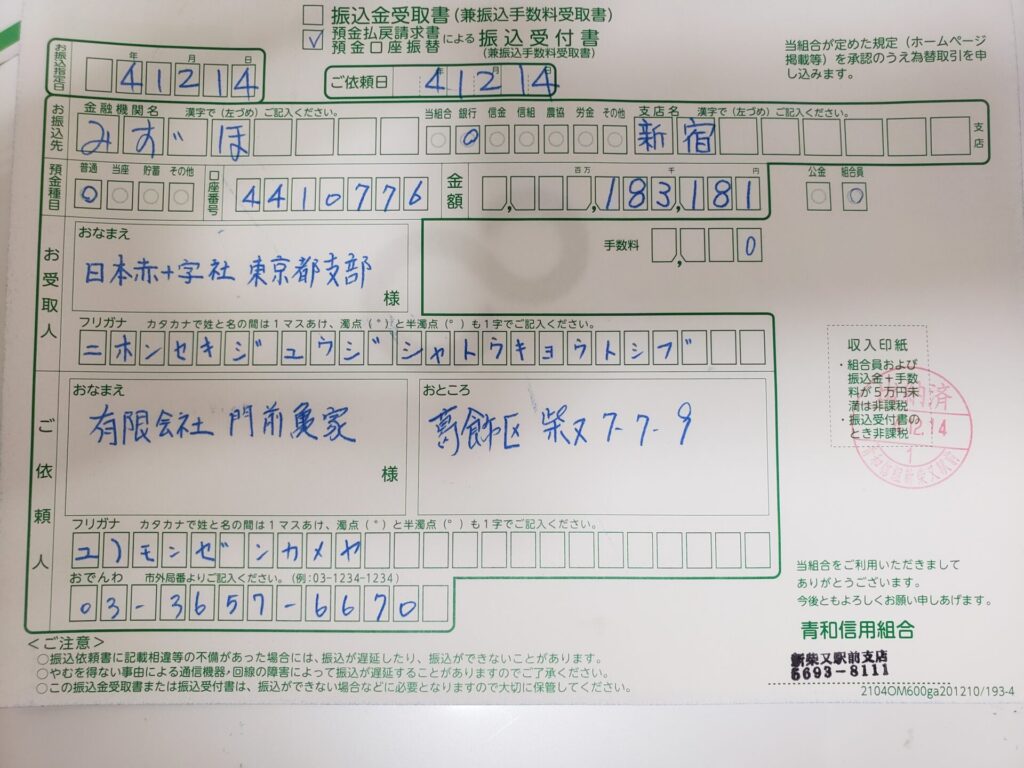 振込金受取書(兼振込手数料受取書)
✓ 預金払戻請求書 預金口座振替 による 振込受付書 (兼振込手数料受取書)
当組合が定めた規定(ホームページ
掲載等)を承認のうえ為替取引を申
し込みます。
お振込指定日 年 月 日 41214
ご依頼日 41214
お振込先
金融機関名 漢字で(左づめ)ご記入ください。 当組合 銀行 信金 信組 農協 労金 その他 支店名 漢字で(左づめ)ご記入ください。
みずほ 新宿 支店
預金種目 普通 当座 貯蓄 その他 口座番号 4410776 金額 百万 千 円 183,181
公金 組合員
手数料 0
お受取人
おなまえ
日本赤十字社 東京都支部
様
フリガナ カタカナで姓と名の間は1マスあけ、濁点(゛)と半濁点(゜)も1字でご記入ください。
ニホンセキジュウジシャトウキョウトシブ
ご依頼人
おなまえ
有限会社 門前亀家
様
おところ
葛飾区 柴又 7-7-9
フリガナ カタカナで姓と名の間は1マスあけ、濁点(゛)と半濁点(゜)も1字でご記入ください。
ユ)モンゼンカメヤ
おでんわ 市外局番よりご記入ください。(例:03-1234-1234)
03-3657-6670
収入印紙
・組合員および
振込金+手数
料が5万円未
満は非課税
・振込受付書の
とき非課税
済
12.14
1
当組合をご利用いただきまして
ありがとうございます。
今後ともよろしくお願い申しあげます。
青和信用組合
新柴又駅前支店
5693-8111
2104OM600ga201210/193-4
<ご注意>
○振込依頼書に記載相違等の不備があった場合には、振込が遅延したり、振込ができないことがあります。
○やむを得ない事由による通信機器・回線の障害によって振込が遅延することがありますのでご了承ください。
○この振込金受取書または振込受付書は、振込ができない場合などに必要となりますので大切に保管してください。